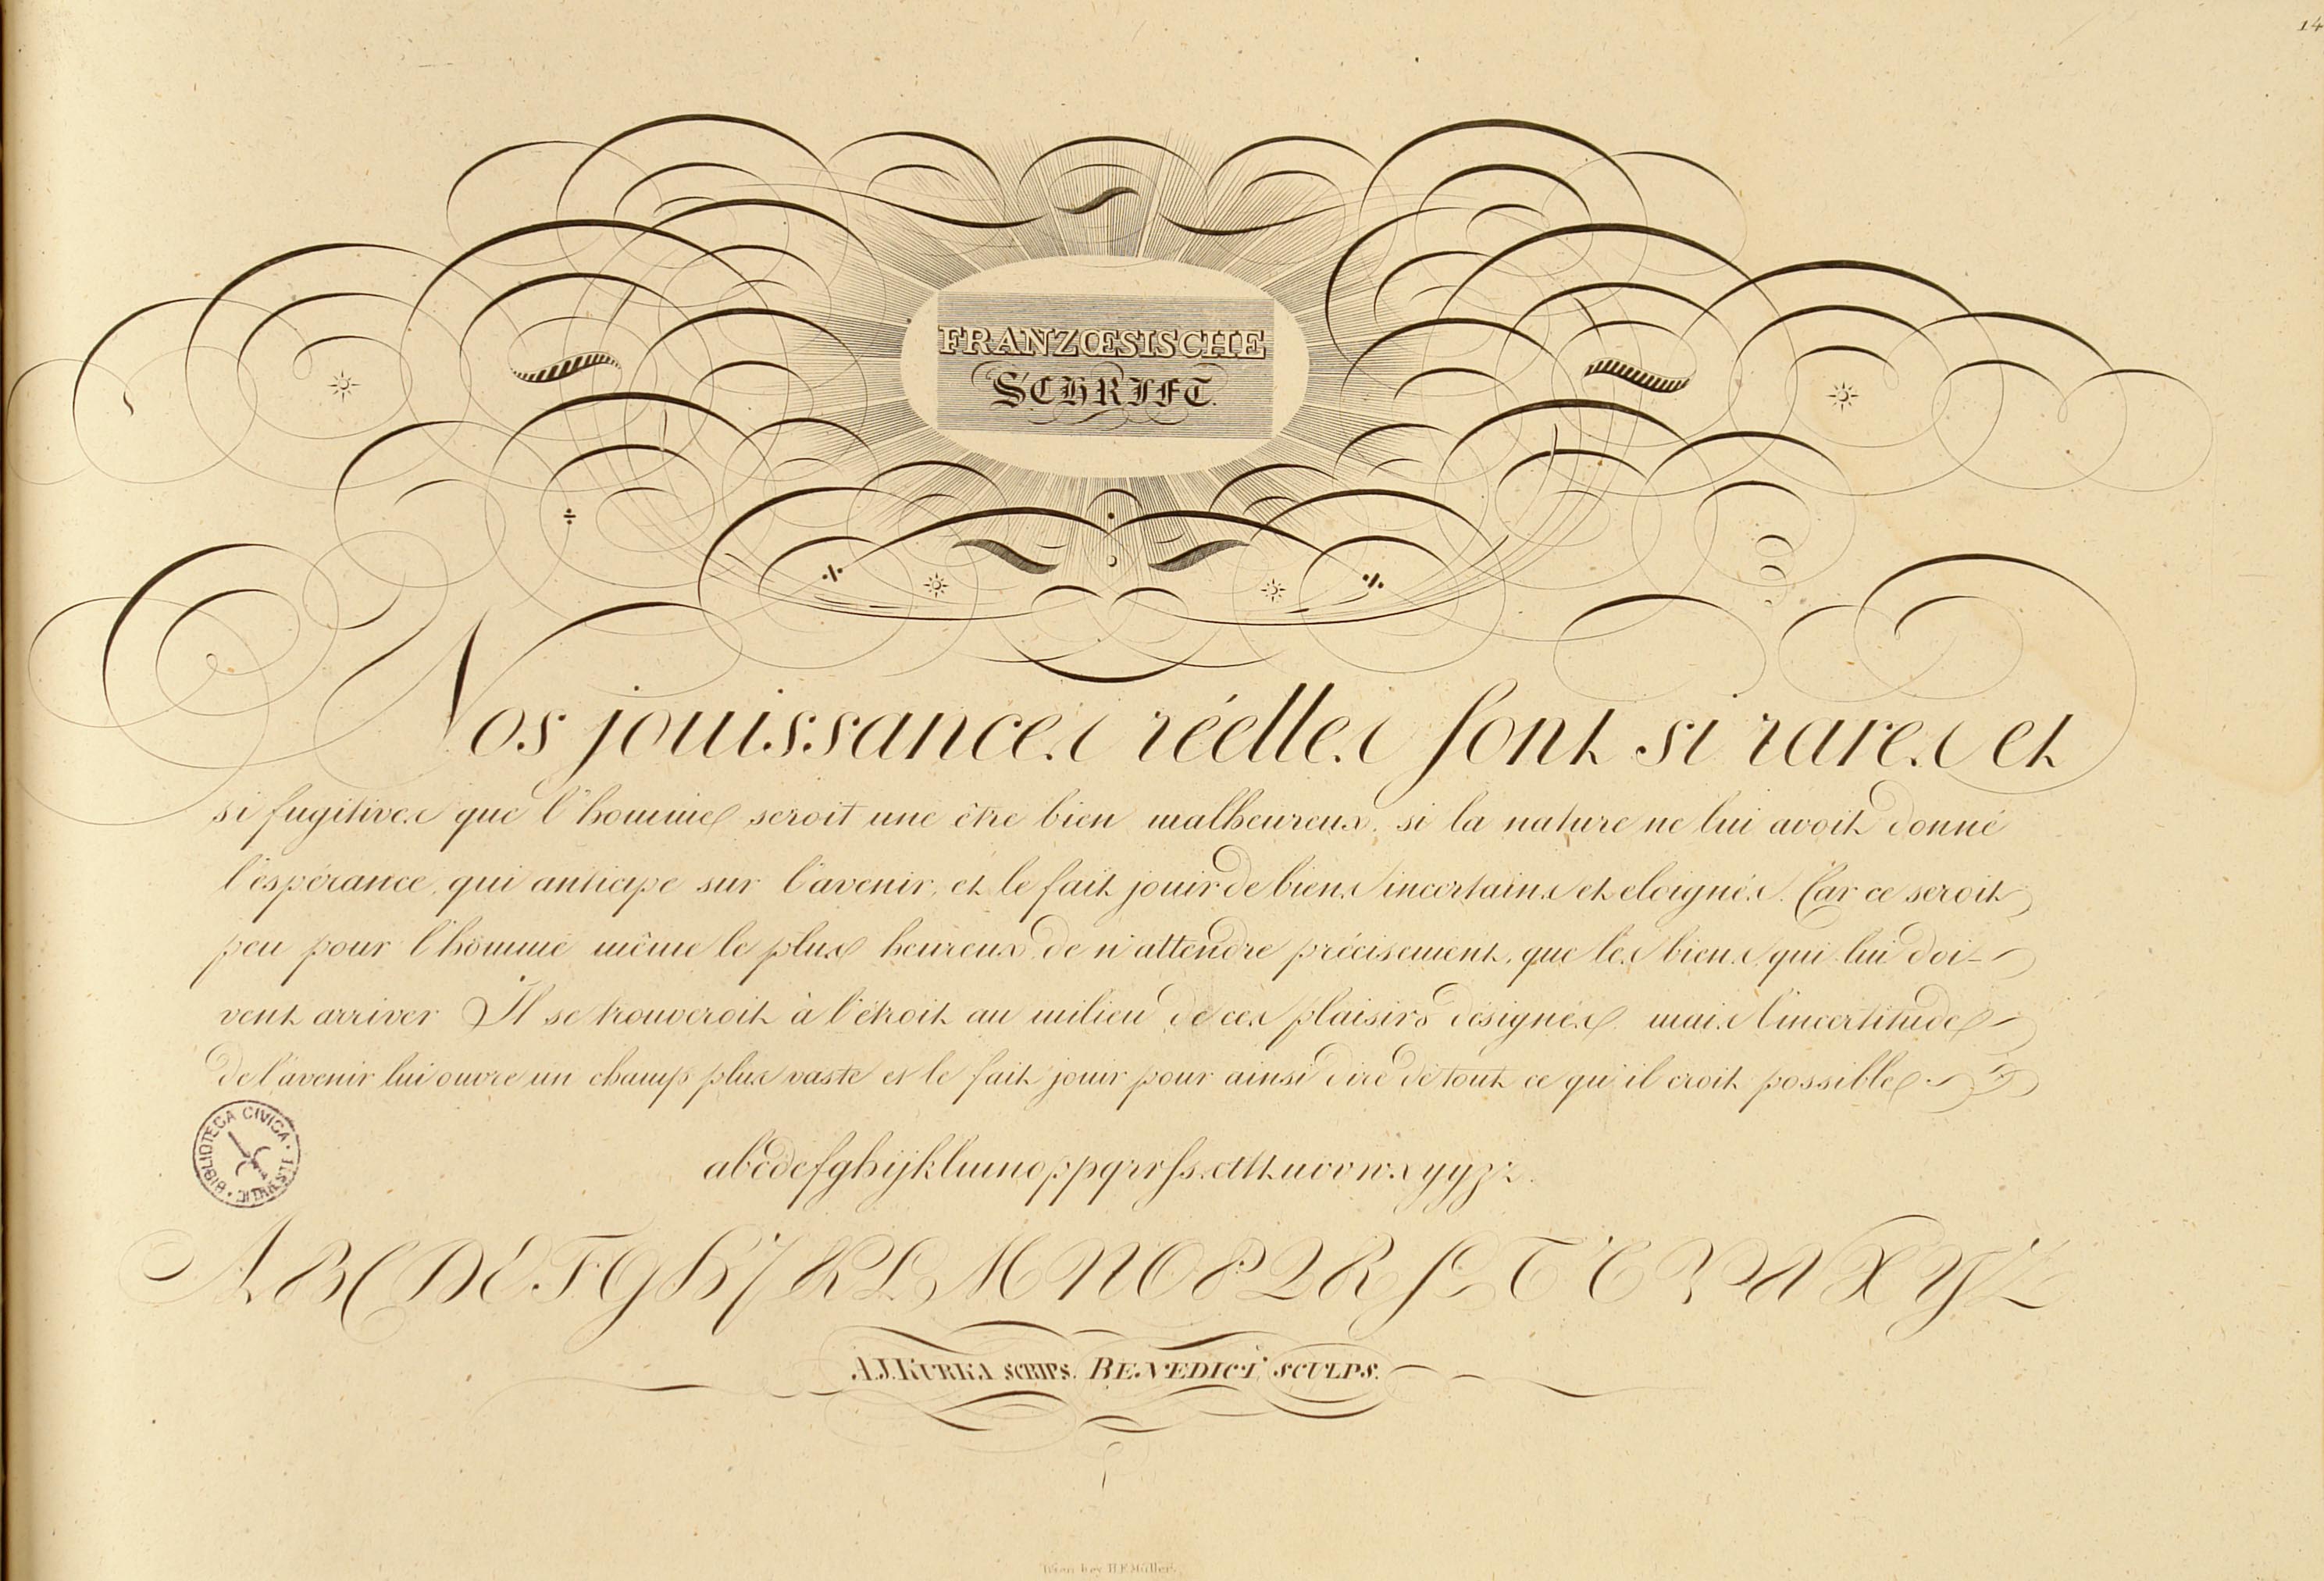 14
FRANZŒSISCHE
SCHRIFT.
Nos jouissances réelles sont si rares et
si fugitives que l'homme seroit une être bien malheureux, si la nature ne lui avoit donné
l'espérance, qui anticipe sur l'avenir, et le fait jouir de biens incertains et eloignés. Car ce seroit
peu pour l'homme même le plus heureux de n'attendre précisement, que les biens qui lui doi-
vent arriver. Il se trouveroit à l'étroit au milieu de ces plaisirs designés, mais l'incertitude
de l'avenir lui ouvre un champ plus vaste et le fait jouir pour ainsi dire de tout ce qu'il croit possible
BIBLIOTECA CIVICA
abcddefghijklmnoppqrrſsctttuvvwxyyzz.
ABCDEFGHJKLMNOPQRSTUVWXYZ
A.J. KURKA SCRIPS. BENEDICT SCULPS.
Wien bey H.F. Müller.